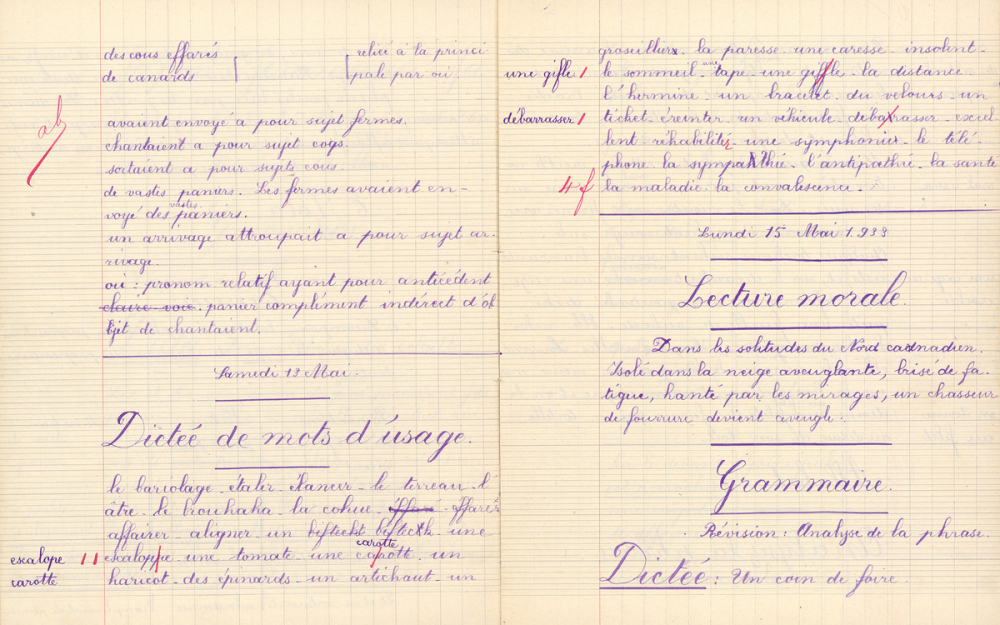 des cous effarés relié à la princi
de canards pale par où
ab
avaient envoyé a pour sujet fermes.
chantaient a pour sujet coqs.
sortaient a pour sujets cous
de vastes paniers. Les fermes avaient en-
voyé des vastes paniers.
un arrivage attroupait a pour sujet ar-
rivage.
où : pronom relatif ayant pour antécédent
claire-voie. panier complément indirect d'ob
bjet de chantaient.
Samedi 13 Mai.
Dictée de mots d'usage.
le bariolage - étaler - élancer - le terreau - l'
âtre - le brouhaha - la cohue - effaré - effarer
affairer - aligner - un bifteckt bifteck - une
escalope 11 escaloppe - une tomate - une carotte carott - un
carotte haricot - des épinards - un artichaut - un
groseillier - la paresse - une caresse - insolent -
une gifle 1 le sommeil - une tape - une giffle - la distance -
l'hermine - un bracelet - du velours - un
débarrasser 1 ticket - éreinter - un véhicule - débarasser - excel
lent - réhabilités - une symphonie - le télé
phone - la sympathie - l'antipathie - la santé
4f la maladie - la convalescence -
Lundi 15 Mai 1933
Lecture morale.
Dans les solitudes du Nord cadnadien.
Isolé dans la neige aveuglante, brisé de fa-
tigue, hanté par les mirages, un chasseur
de fourrure devient aveugle.
Grammaire.
Révision : Analyse de la phrase.
Dictée : Un coin de foire.